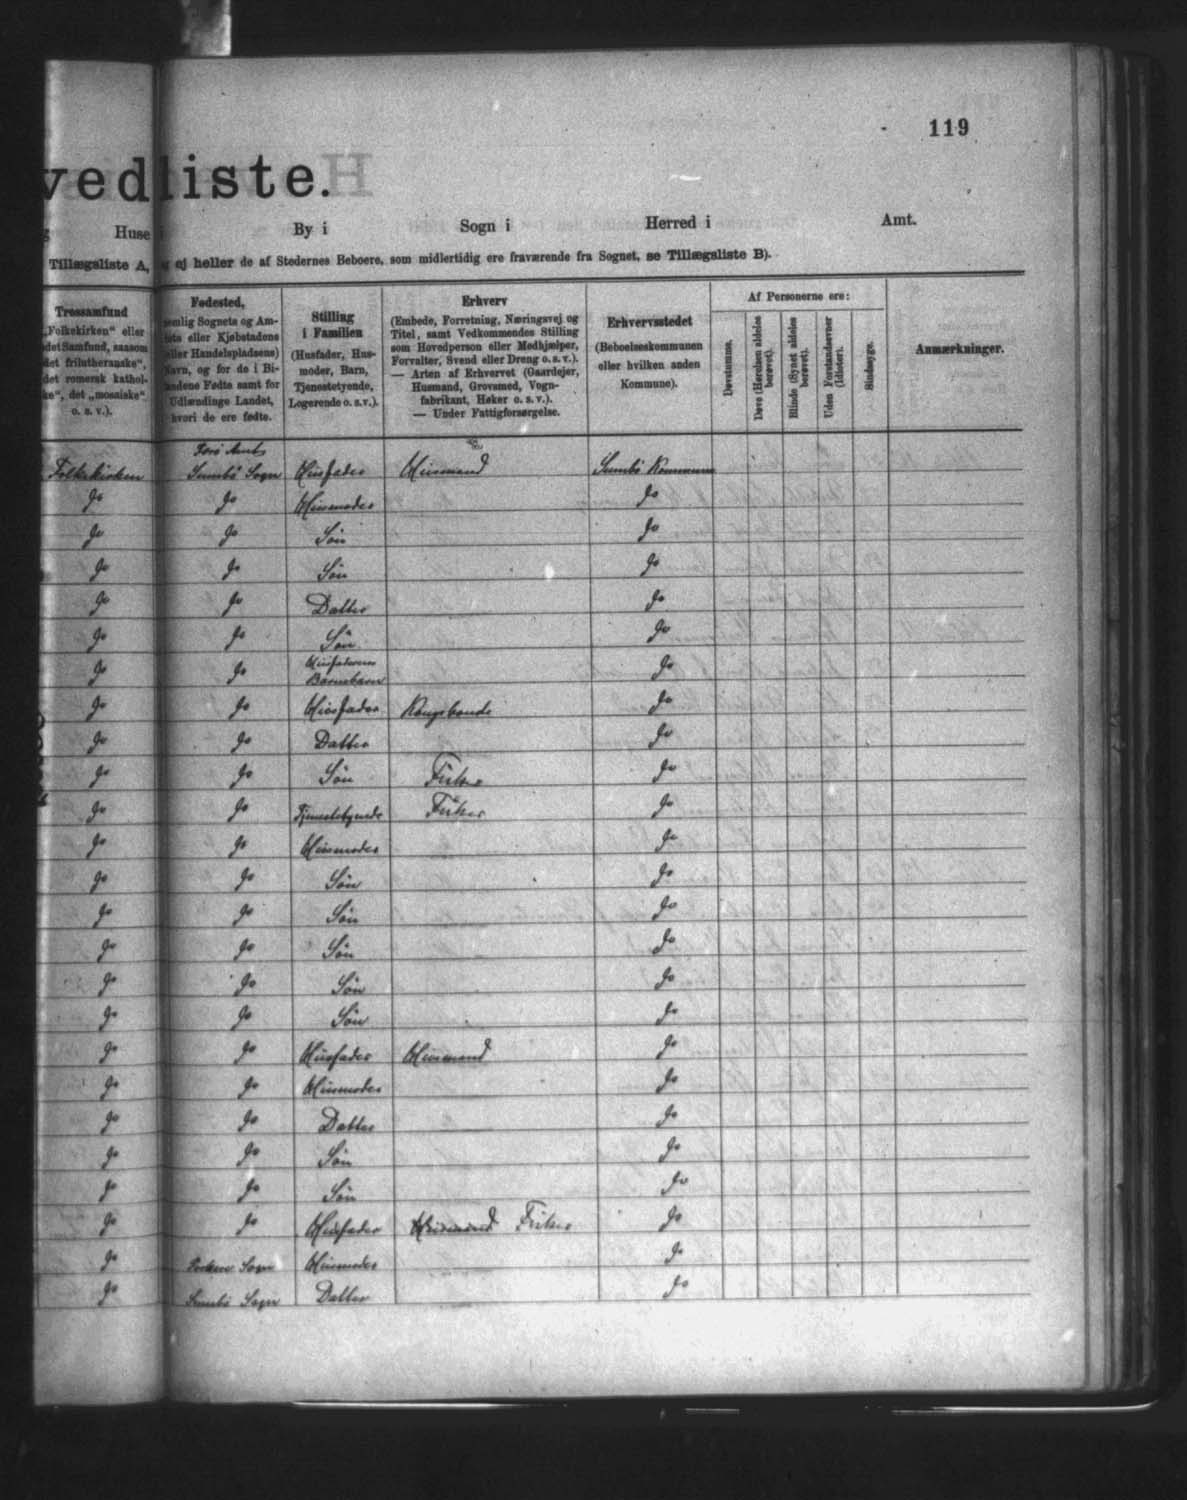 119
vedliste.
Huse i By i Sogn i Herred i Amt.
Tillægsliste A, og ej heller de af Stedernes Beboere, som midlertidig ere fraværende fra Sognet, se Tillægsliste B).
Trossamfund
„Folkekirken“ eller
det Samfund, saasom
det frilutheranske“,
det romersk kathol-
ke“, det „mosaiske“
o. s. v.).
Fødested,
nemlig Sognets og Am-
eller Kjøbstadens
eller Handelspladsens)
Navn, og for de i Bi-
landene Fødte samt for
Udlændinge Landet,
hvori de ere fødte.
Stilling
i Familien
(Husfader, Hus-
moder, Barn,
Tjenestetyende,
Logerende o. s. v.).
Erhverv
(Embede, Forretning, Næringsvej og
Titel, samt Vedkommendes Stilling
som Hovedperson eller Medhjælper,
Forvalter, Svend eller Dreng o. s. v.).
— Arten af Erhvervet (Gaardejer,
Husmand, Grovsmed, Vogn-
fabrikant, Høker o. s. v.).
— Under Fattigforsørgelse.
Erhvervsstedet
(Beboelseskommunen
eller hvilken anden
Kommune).
Af Personerne ere:
Døvstumme.
Døve (Hørelsen aldeles
berøvet).
Blinde (Synet aldeles
berøvet).
Uden Forstandsevner
(Idioter).
Sindssyge.
Anmærkninger.
Færø Amt
Folkekirken Sumbø Sogn Husfader Husmand Sumbø Kommune
do do Husmoder do
do do Søn do
do do Søn do
do do Datter do
do do Søn do
do do Husfaderens Barnebarn do
do do Husfader Kongsbonde do
do do Datter do
do do Søn Fisker do
do do Tjenestetyende Fisker do
do do Husmoder do
do do Søn do
do do Søn do
do do Søn do
do do Søn do
do do Søn do
do do Husfader Husmand do
do do Husmoder do
do do Datter do
do do Søn do
do do Søn do
do do Husfader Husmand Fisker do
do Sogn Husmoder do
do Sumbø Sogn Datter do